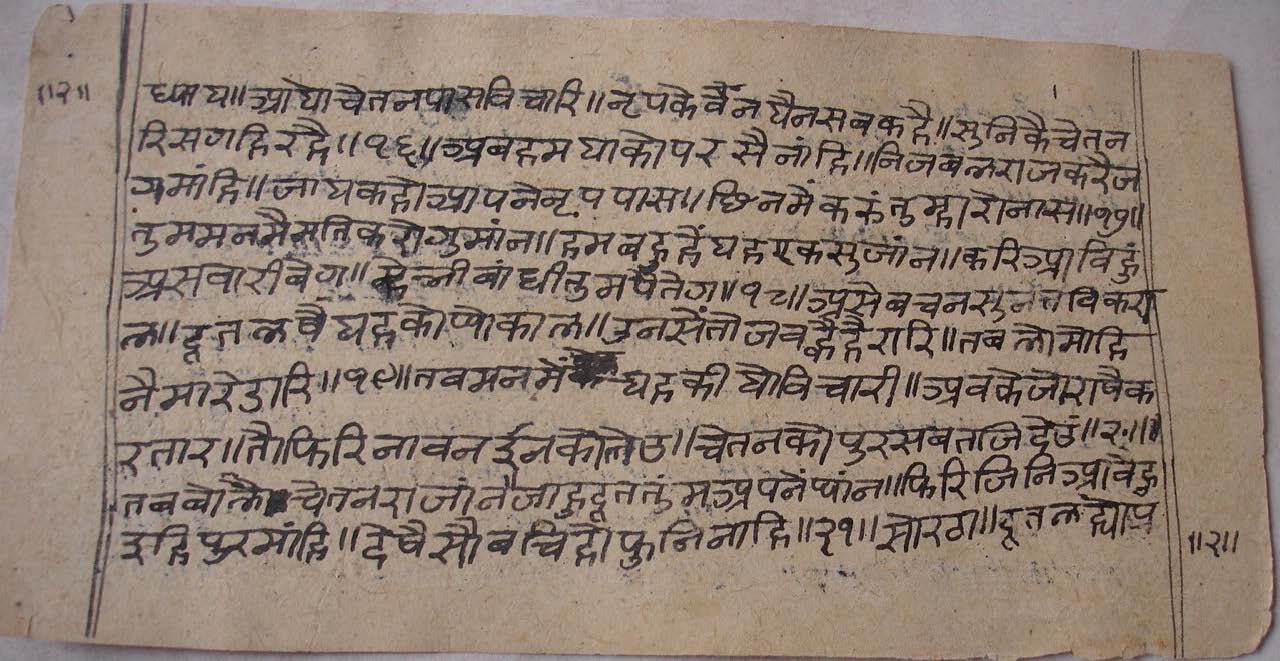 ॥२॥
ध्याय॥ आयो चेतनपासविचारि॥ नृपकेवैंनयैनसबकहै॥ सुनिकैचेतन
रिसगहिरहै॥१६॥ अबहमयाकोपरसैनांहि॥ निजबलराजकरैज
गमांहि॥ जायकहोआपनेनृपपास॥ छिनमेंकरुंतुम्हारोनास॥१७॥
तुममनमैंमतिकरोगुमांन॥ हमबहुहैंयहएकसुजांन॥ करिआविहुं
असवारीबेग॥ बांधीतुमपैंतेग॥१८॥ अैसेबचनसुनतविकरा
ल॥ दूतलषैयहकोप्योकाल॥ उनसेंतोजबह्वैहैरारि॥ तबलोमोहि
नैमारेडारि॥१९॥ तबमनमेंयहकीयोविचारी॥ अबकेजोराषैक
रतार॥ तौफिरिनावनईनकोलेउ॥ चेतनकोपुरसबतजिदेउं॥२०॥
तबबोलैचेतनराजांन॥ जाहुदूततुंमअपनेंप्यांन॥ फिरिजिनिआवैहु
इहिपुरमांहि॥ देषैसौबचिहोफुनिनाहि॥२१॥ सोरठा॥ दूतलह्योप्र
॥२॥